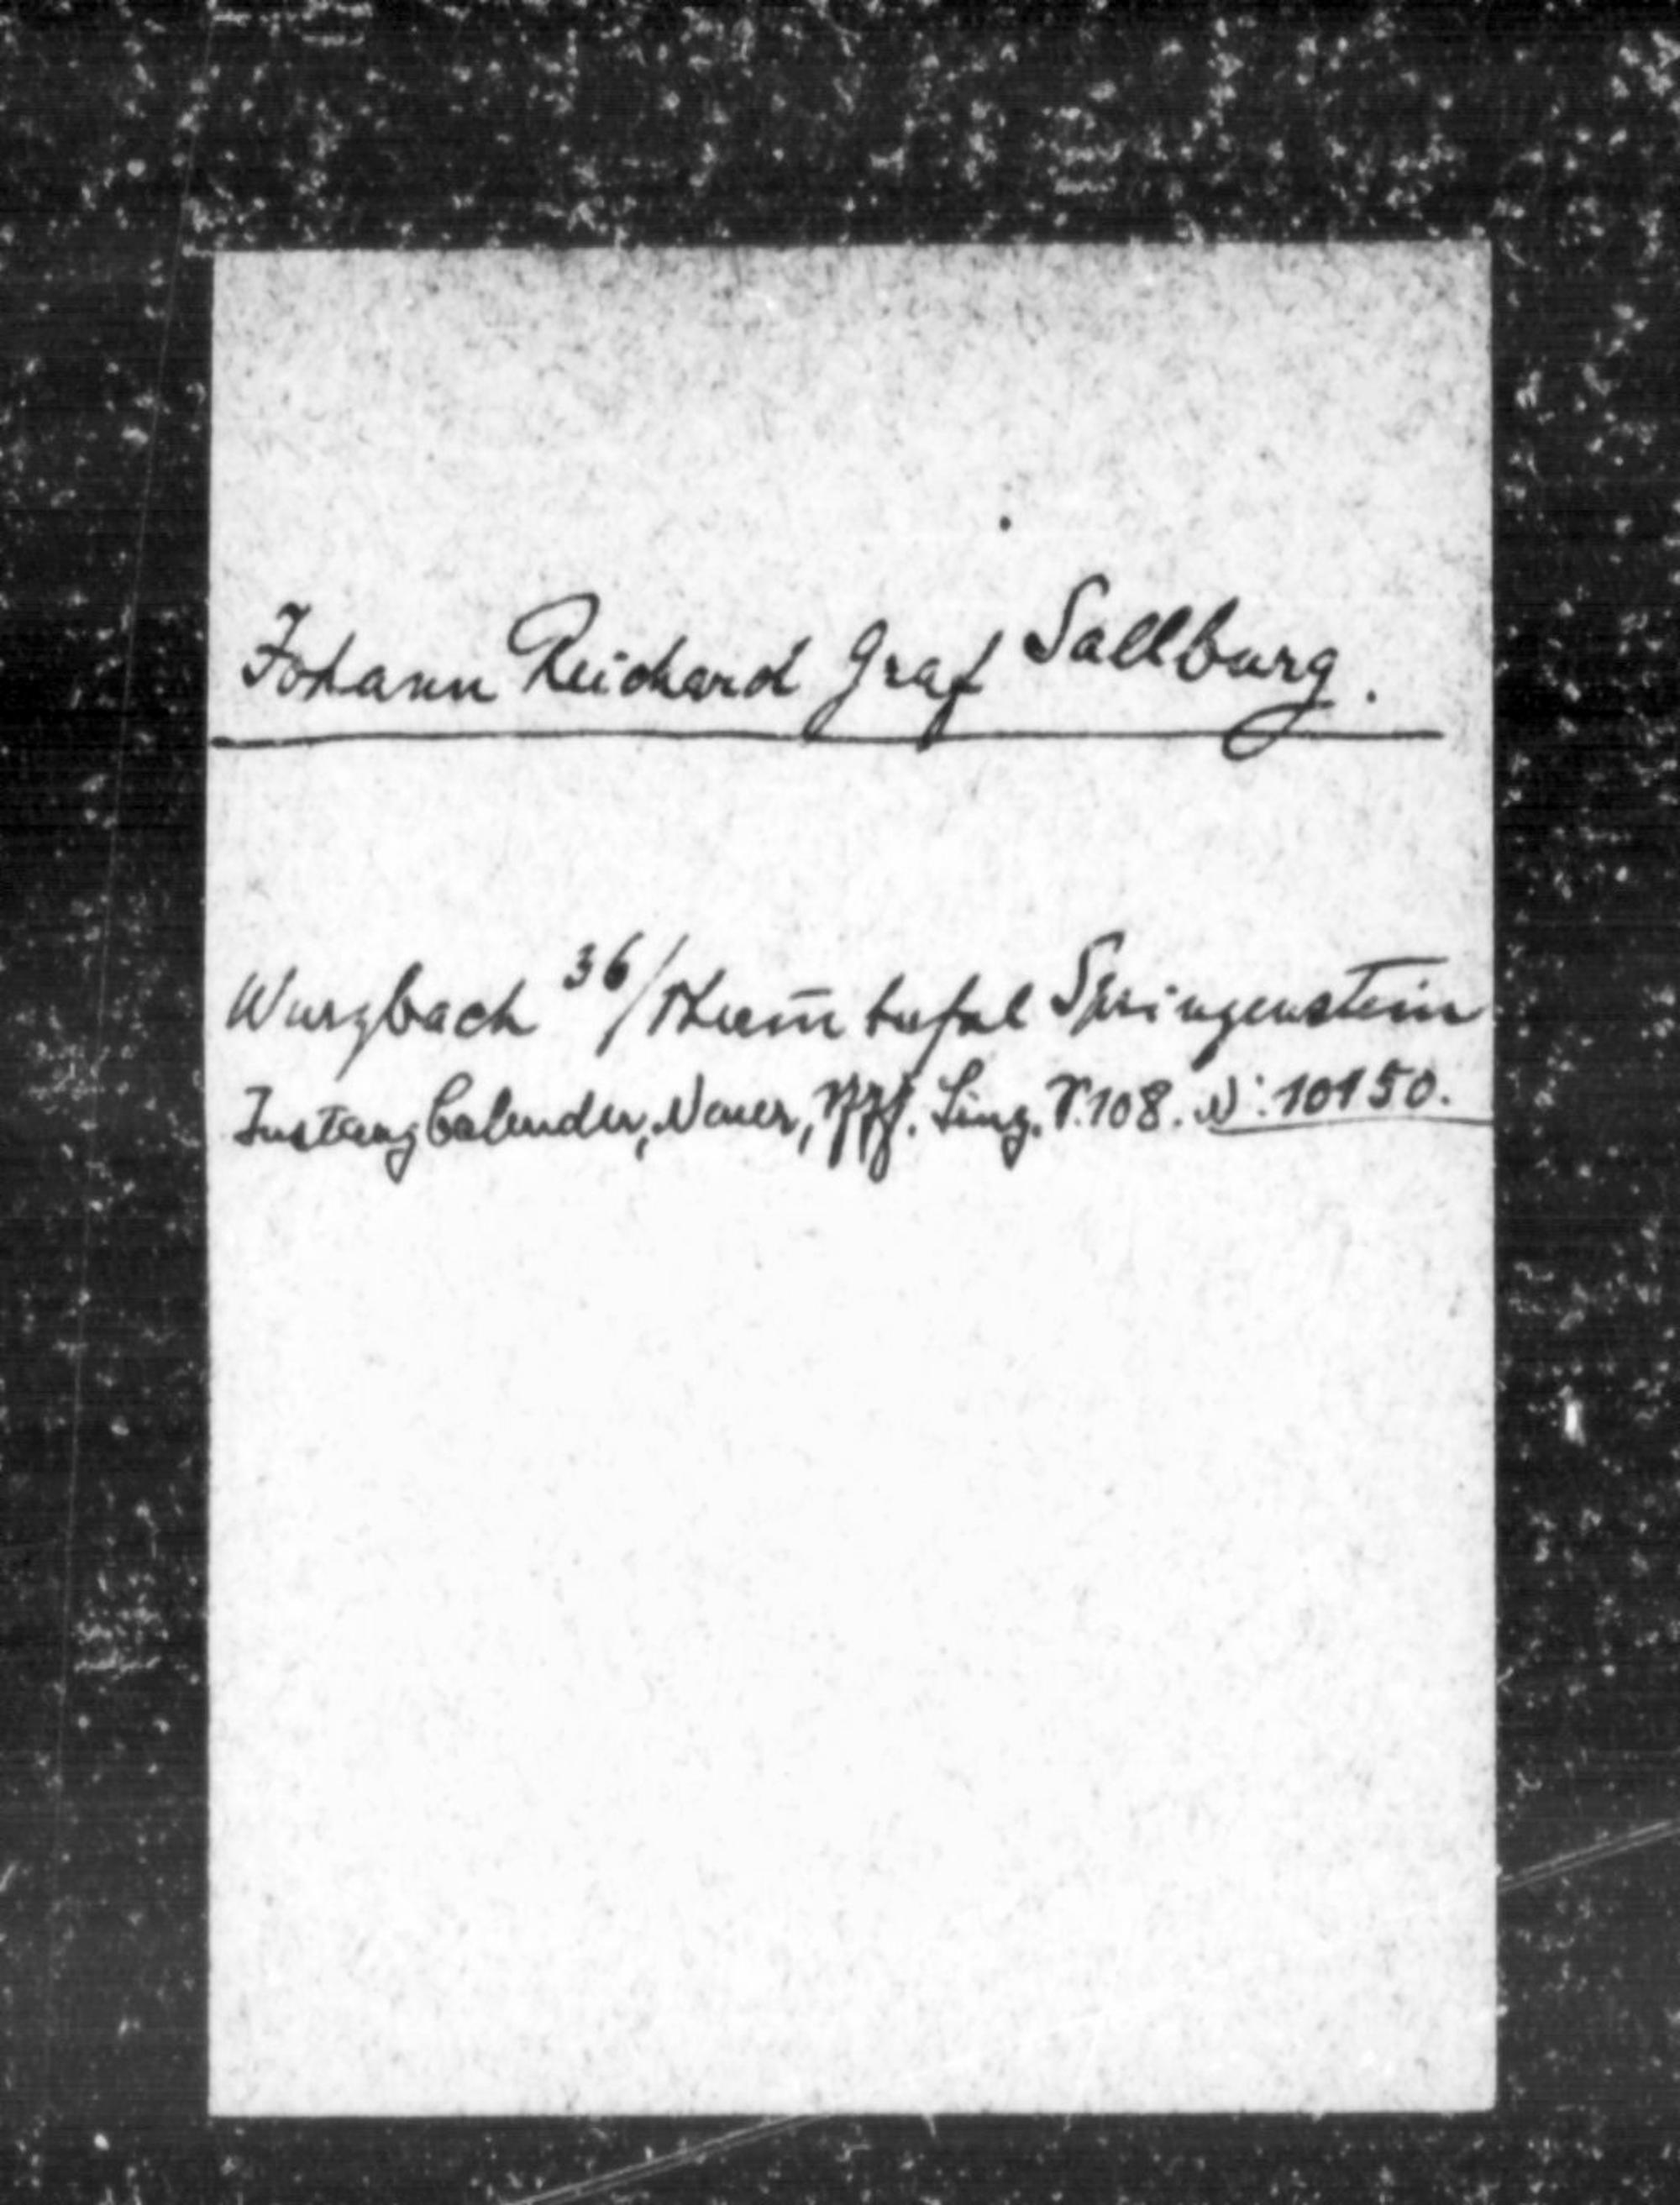 Johann Reichard Graf Sallburg.
Wurzbach 36/ Stammtafel Springenstein
Instanz Calender, Neuer, Linz. P. 108. N: 10150.